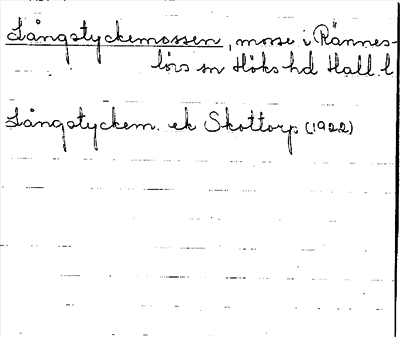 Långstyckemossen, mosse i Rännes-
lövs sn Höks hd Hall. l
Långstyckem. ek Skottorp (1922)